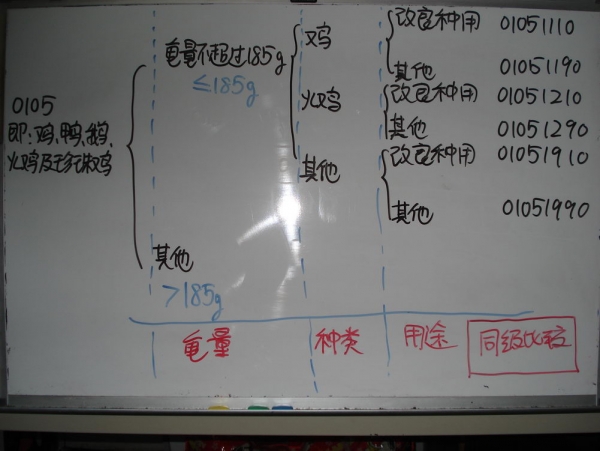 0105
即:鸡,鸭,鹅,
火鸡及珍珠鸡
重量不超过185g
≤185g
其他
>185g
鸡
火鸡
其他
改良种用 01051110
其他 01051190
改良种用 01051210
其他 01051290
改良种用 01051910
其他 01051990
重量 种类 用途 同级比较